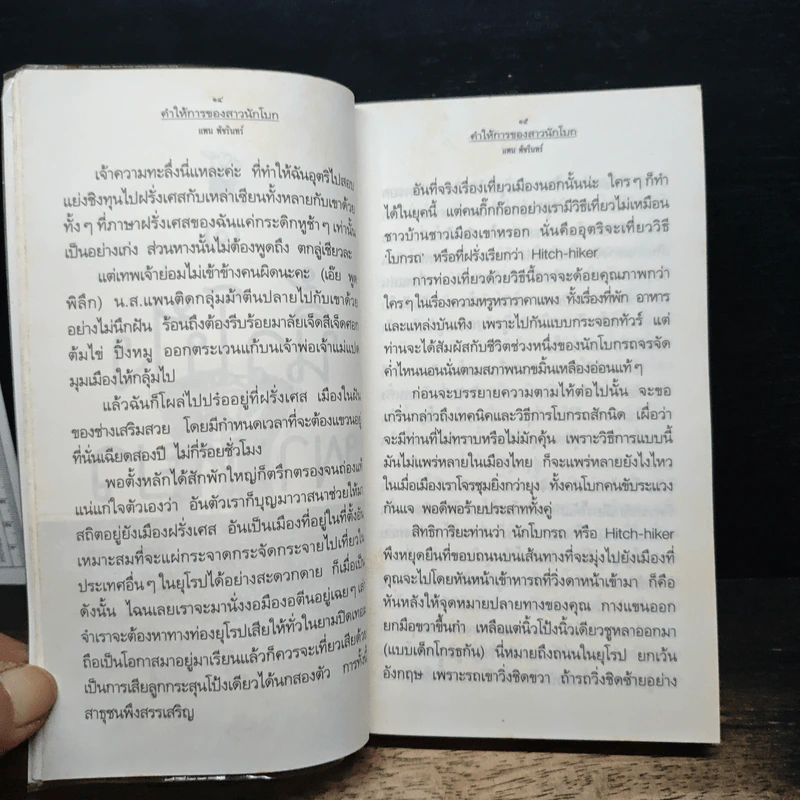 ๑๔
คำให้การของสาวนักโบก
แพน พัชรินทร์
เจ้าความทะลึ่งนี่แหละค่ะ ที่ทำให้ฉันอุตริไปสอบ
แย่งชิงทุนไปฝรั่งเศสกับเหล่าเซียนทั้งหลายกับเขาด้วย
ทั้งๆ ที่ภาษาฝรั่งเศสของฉันแค่กระดิกหูช้าๆ เท่านั้น
เป็นอย่างเก่ง ส่วนหางนั้นไม่ต้องพูดถึง ตกลู่เชียวละ
แต่เทพเจ้าย่อมไม่เข้าข้างคนผิดนะคะ (เอ๊ย พูด
พิลึก) น.ส.แพนติดกลุ่มม้าตีนปลายไปกับเขาด้วย
อย่างไม่นึกฝัน ร้อนถึงต้องรีบร้อยมาลัยเจ็ดสีเจ็ดศอก
ต้มไข่ ปิ้งหมู ออกตระเวนแก้บนเจ้าพ่อเจ้าแม่แปด
มุมเมืองให้กลุ้มไป
แล้วฉันก็โผล่ไปปร๋ออยู่ที่ฝรั่งเศส เมืองในฝัน
ของช่างเสริมสวย โดยมีกำหนดเวลาที่จะต้องแขวนอยู่
ที่นั่นเฉียดสองปี ไม่กี่ร้อยชั่วโมง
พอตั้งหลักได้สักพักใหญ่ก็ตรึกตรองจนถ่องแท้
แน่แก่ใจตัวเองว่า อันตัวเราก็บุญมาวาสนาช่วยให้มา
สถิตอยู่ยังเมืองฝรั่งเศส อันเป็นเมืองที่อยู่ในที่ตั้งอัน
เหมาะสมที่จะแผ่กระจาดกระจัดกระจายไปเที่ยวใน
ประเทศอื่นๆ ในยุโรปได้อย่างสะดวกดาย ก็เมื่อเป็น
ดังนั้น ไฉนเลยเราจะมานั่งงอมืองอตีนอยู่เฉยๆ เล่า
จำเราจะต้องหาทางท่องยุโรปเสียให้ทั่วในยามปิดเทอม
ถือเป็นโอกาสมาอยู่มาเรียนแล้วก็ควรจะเที่ยวเสียด้วย
เป็นการเสียลูกกระสุนโป้งเดียวได้นกสองตัว การทั้งนี้
สาธุชนพึงสรรเสริญ
๑๕
คำให้การของสาวนักโบก
แพน พัชรินทร์
อันที่จริงเรื่องเที่ยวเมืองนอกนั้นน่ะ ใครๆ ก็ทำ
ได้ในยุคนี้ แต่คนกิ๊กก๊อกอย่างเรามีวิธีเที่ยวไม่เหมือน
ชาวบ้านชาวเมืองเขาหรอก นั่นคืออุตริจะเที่ยววิธี
'โบกรถ' หรือที่ฝรั่งเรียกว่า Hitch-hiker
การท่องเที่ยวด้วยวิธีนี้อาจจะด้อยคุณภาพกว่า
ใครๆ ในเรื่องความหรูหราราคาแพง ทั้งเรื่องที่พัก อาหาร
และแหล่งบันเทิง เพราะไปกันแบบกระจอกทัวร์ แต่
ท่านจะได้สัมผัสกับชีวิตช่วงหนึ่งของนักโบกรถจรจัด
ค่ำไหนนอนนั่นตามสภาพนกขมิ้นเหลืองอ่อนแท้ๆ
ก่อนจะบรรยายความตามไท้ต่อไปนั้น จะขอ
เกริ่นกล่าวถึงเทคนิคและวิธีการโบกรถสักนิด เผื่อว่า
จะมีท่านที่ไม่ทราบหรือไม่มักคุ้น เพราะวิธีการแบบนี้
มันไม่แพร่หลายในเมืองไทย ก็จะแพร่หลายยังไงไหว
ในเมื่อเมืองเราโจรชุมยิ่งกว่ายุง ทั้งคนโบกคนขับระแวง
กันแจ พอดีพอร้ายประสาททั้งคู่
สิทธิการิยะท่านว่า นักโบกรถ หรือ Hitch-hiker
พึงหยุดยืนที่ขอบถนนบนเส้นทางที่จะมุ่งไปยังเมืองที่
คุณจะไปโดยหันหน้าเข้าหารถที่วิ่งดาหน้าเข้ามา ก็คือ
หันหลังให้จุดหมายปลายทางของคุณ กางแขนออก
ยกมือขวาขึ้นกำ เหลือแต่นิ้วโป้งนิ้วเดียวชูหลาออกมา
(แบบเด็กโกรธกัน) นี่หมายถึงถนนในยุโรป ยกเว้น
อังกฤษ เพราะรถเขาวิ่งชิดขวา ถ้ารถวิ่งชิดซ้ายอย่าง